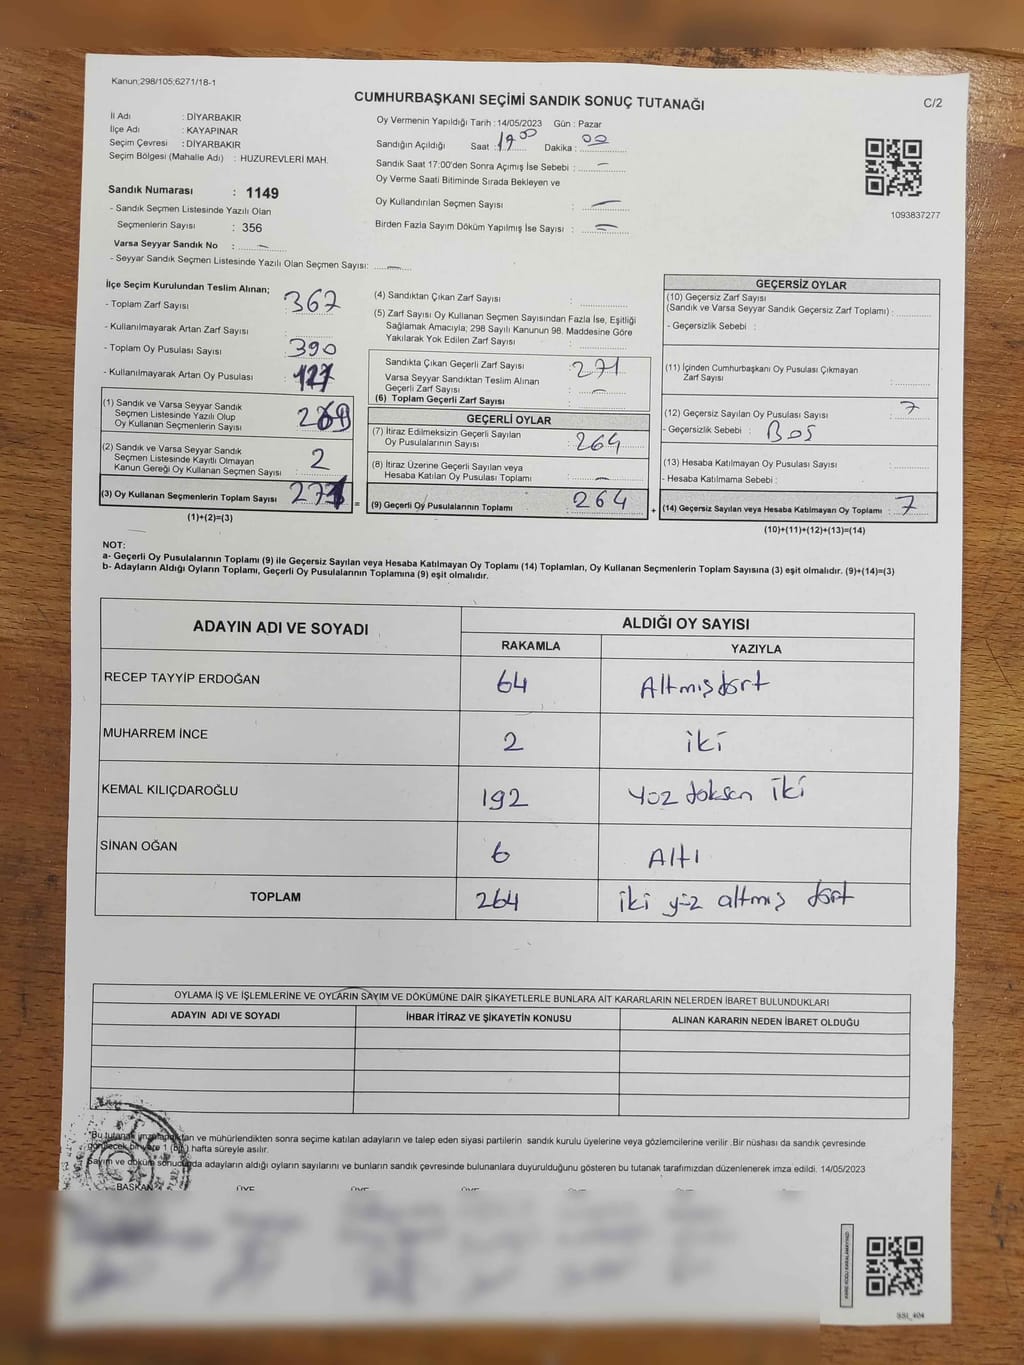 Kanun;298/105;6271/18-1
CUMHURBAŞKANI SEÇİMİ SANDIK SONUÇ TUTANAĞI
C/2
İl Adı : DİYARBAKIR
İlçe Adı : KAYAPINAR
Seçim Çevresi : DİYARBAKIR
Seçim Bölgesi (Mahalle Adı) : HUZUREVLERİ MAH.
Sandık Numarası : 1149
- Sandık Seçmen Listesinde Yazılı Olan
Seçmenlerin Sayısı : 356
Varsa Seyyar Sandık No : —
- Seyyar Sandık Seçmen Listesinde Yazılı Olan Seçmen Sayısı: —
Oy Vermenin Yapıldığı Tarih :14/05/2023 Gün : Pazar
Sandığın Açıldığı Saat : Dakika : 00
Sandık Saat 17:00'den Sonra Açımış İse Sebebi : —
Oy Verme Saati Bitiminde Sırada Bekleyen ve
Oy Kullandırılan Seçmen Sayısı : —
Birden Fazla Sayım Döküm Yapılmış İse Sayısı : —
1093837277
İlçe Seçim Kurulundan Teslim Alınan;
- Toplam Zarf Sayısı 367
- Kullanılmayarak Artan Zarf Sayısı :
- Toplam Oy Pusulası Sayısı 390
- Kullanılmayarak Artan Oy Pusulası
(1) Sandık ve Varsa Seyyar Sandık
Seçmen Listesinde Yazılı Olup
Oy Kullanan Seçmenlerin Sayısı
(2) Sandık ve Varsa Seyyar Sandık
Seçmen Listesinde Kayıtlı Olmayan
Kanun Gereği Oy Kullanan Seçmen Sayısı 2
(3) Oy Kullanan Seçmenlerin Toplam Sayısı 271
(1)+(2)=(3)
=
(4) Sandıktan Çıkan Zarf Sayısı :
(5) Zarf Sayısı Oy Kullanan Seçmen Sayısından Fazla İse, Eşitliği
Sağlamak Amacıyla; 298 Sayılı Kanunun 98. Maddesine Göre
Yakılarak Yok Edilen Zarf Sayısı :
Sandıkta Çıkan Geçerli Zarf Sayısı : 271
Varsa Seyyar Sandıktan Teslim Alınan
Geçerli Zarf Sayısı : —
(6) Toplam Geçerli Zarf Sayısı :
GEÇERLİ OYLAR
(7) İtiraz Edilmeksizin Geçerli Sayılan
Oy Pusulalarının Sayısı : 264
(8) İtiraz Üzerine Geçerli Sayılan veya
Hesaba Katılan Oy Pusulası Toplamı : —
(9) Geçerli Oy Pusulalarının Toplamı : 264
+
GEÇERSİZ OYLAR
(10) Geçersiz Zarf Sayısı
(Sandık ve Varsa Seyyar Sandık Geçersiz Zarf Toplamı) :
- Geçersizlik Sebebi :
(11) İçinden Cumhurbaşkanı Oy Pusulası Çıkmayan
Zarf Sayısı :
(12) Geçersiz Sayılan Oy Pusulası Sayısı : 7
- Geçersizlik Sebebi : Boş
(13) Hesaba Katılmayan Oy Pusulası Sayısı :
- Hesaba Katılmama Sebebi :
(14) Geçersiz Sayılan veya Hesaba Katılmayan Oy Toplamı : 7
(10)+(11)+(12)+(13)=(14)
NOT:
a- Geçerli Oy Pusulalarının Toplamı (9) ile Geçersiz Sayılan veya Hesaba Katılmayan Oy Toplamı (14) Toplamları, Oy Kullanan Seçmenlerin Toplam Sayısına (3) eşit olmalıdır. (9)+(14)=(3)
b- Adayların Aldığı Oyların Toplamı, Geçerli Oy Pusulalarının Toplamına (9) eşit olmalıdır.
ADAYIN ADI VE SOYADI ALDIĞI OY SAYISI
RAKAMLA YAZIYLA
RECEP TAYYİP ERDOĞAN 64 Altmışdört
MUHARREM İNCE 2 iki
KEMAL KILIÇDAROĞLU 192 Yüz doksan iki
SİNAN OĞAN 6 Altı
TOPLAM 264 iki yüz altmış dört
OYLAMA İŞ VE İŞLEMLERİNE VE OYLARIN SAYIM VE DÖKÜMÜNE DAİR ŞİKAYETLERLE BUNLARA AİT KARARLARIN NELERDEN İBARET BULUNDUKLARI
ADAYIN ADI VE SOYADI İHBAR İTİRAZ VE ŞİKAYETİN KONUSU ALINAN KARARIN NEDEN İBARET OLDUĞU
Bu tutanak imzalandıktan ve mühürlendikten sonra seçime katılan adayların ve talep eden siyasi partilerin sandık kurulu üyelerine veya gözlemcilerine verilir .Bir nüshası da sandık çevresinde
görülecek bir yere 1 (bir) hafta süreyle asılır.
Sayım ve döküm sonucunda adayların aldığı oyların sayılarını ve bunların sandık çevresinde bulunanlara duyurulduğunu gösteren bu tutanak tarafımızdan düzenlenerek imza edildi. 14/05/2023
BAŞKAN ÜYE ÜYE ÜYE ÜYE ÜYE